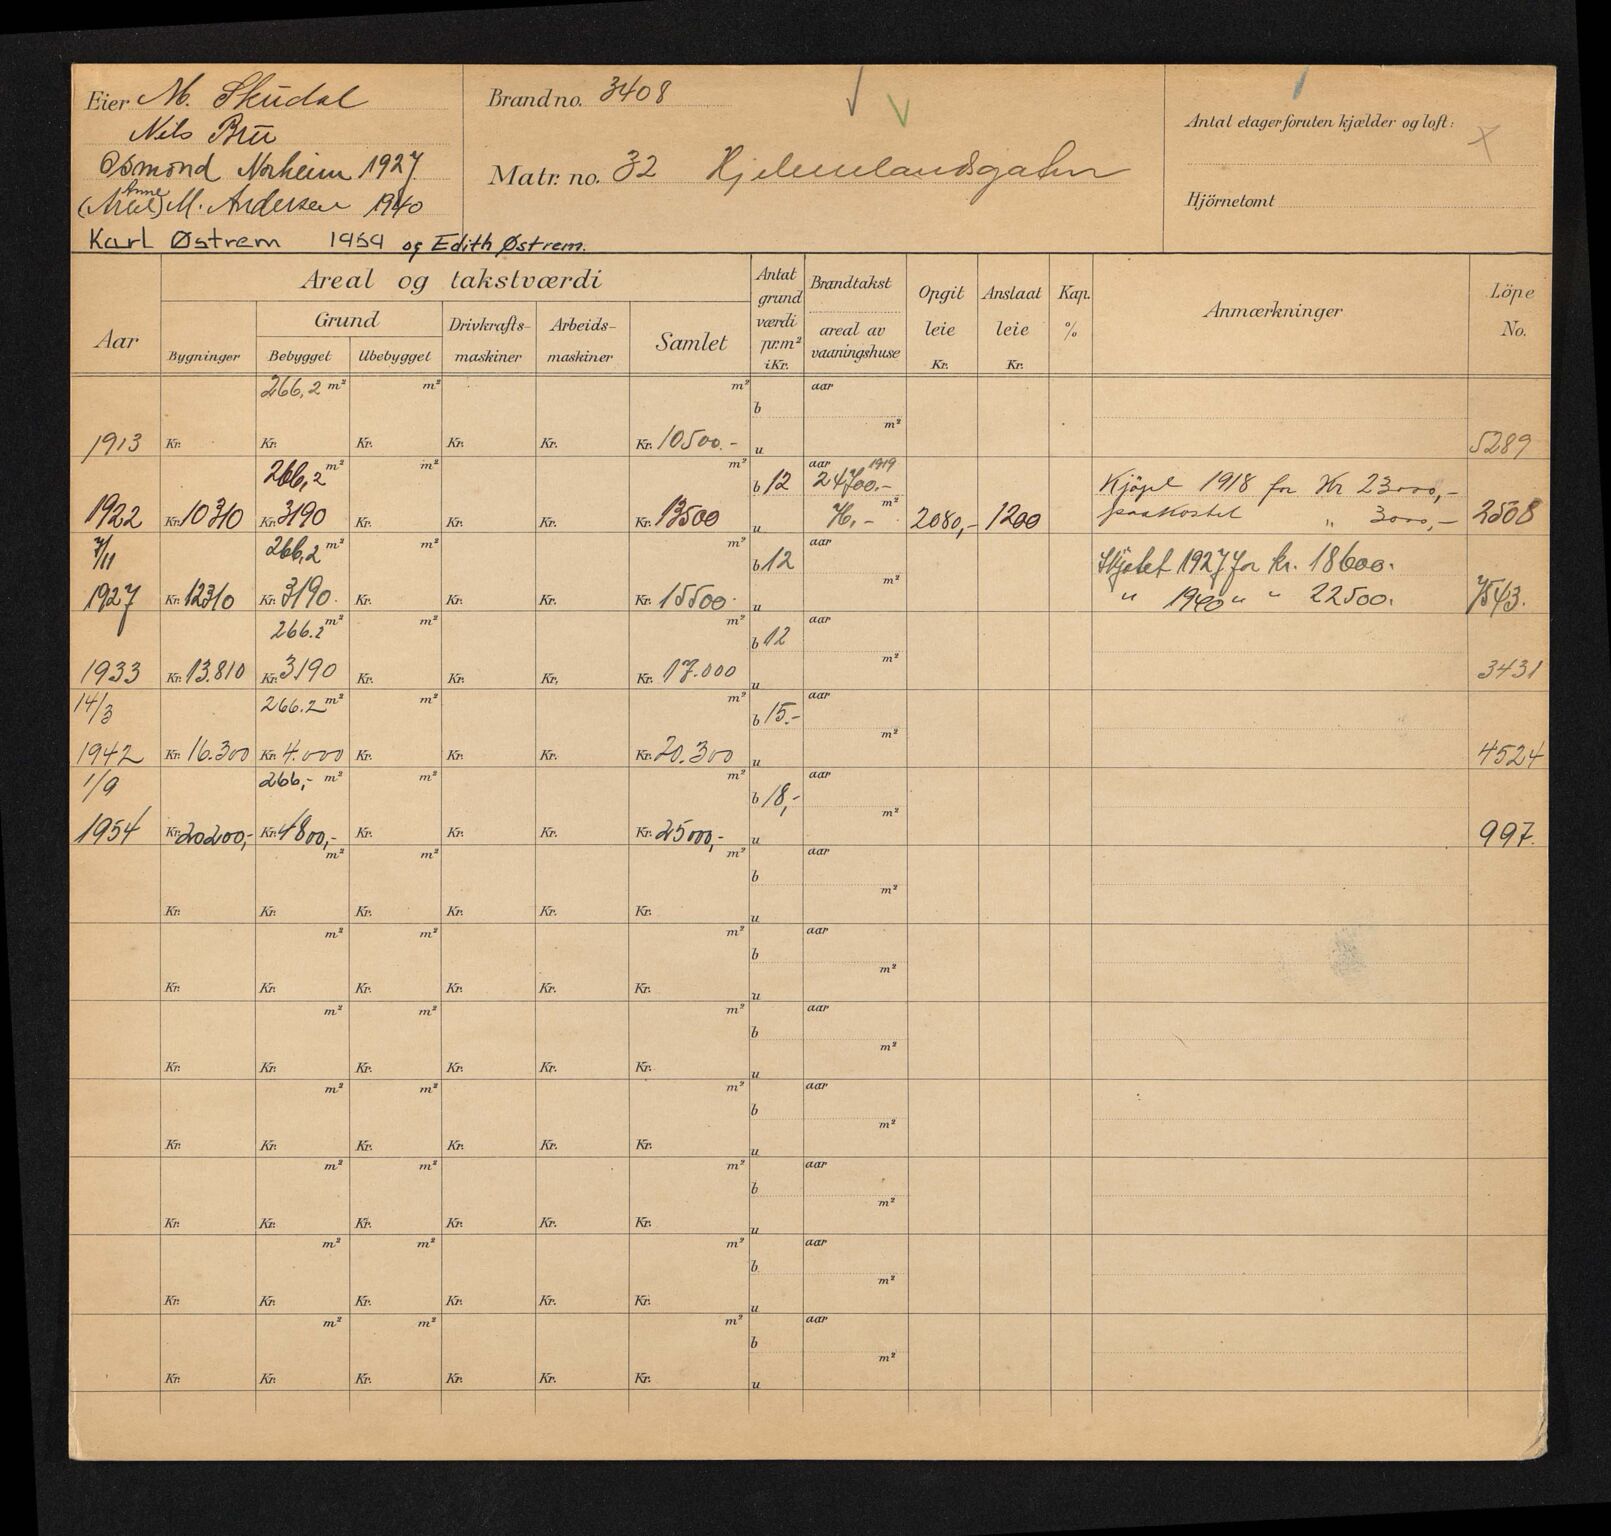 Eier M. Skudal
Nils Bru
Osmond Norheim 1927
Anne
M. Andersen 1940
Karl Østrem 1959 og Edith Østrem.
Brand no. 3408
Matr. no. 32 Hjelmelandsgaten
Antal etager foruten kjælder og loft:
Hjörnetomt
Aar
Areal og takstværdi
Bygninger
Grund
Bebygget Ubebygget
Drivkrafts-maskiner
Arbeids-maskiner
Samlet
Antat grund værdi pr.m² i Kr.
Brandtakst
areal av vaaningshuse
Opgit leie Kr.
Anslaat leie Kr.
Kap. %
Anmærkninger
Löpe No.
266,2 m² m² m² aar
b m²
1913 Kr. Kr. Kr. Kr. Kr. Kr. 10500.- u 5289
266,2 m² m² m² b 12 aar 1919 24700.- Kjöpt 1918 for Kr 23000,-
1922 Kr. 10310 Kr. 3190 Kr. Kr. Kr. Kr. 13500 u 76,- m² 2080,- 1200 paakostet " 3000,- 2508
7/11 266,2 m² m² m² b 12 aar Skjøtet 1927 for kr. 18600.
1927 Kr. 12310 Kr. 3190. Kr. Kr. Kr. Kr. 15500 u m² " 1940 " " 22500. 7543.
266.2 m² m² m² b 12 aar
1933 Kr. 13.810 Kr. 3190 Kr. Kr. Kr. Kr. 17.000 u m² 3431
14/3 266.2 m² m² m² b 15.- aar
1942 Kr. 16.300 Kr. 4.000 Kr. Kr. Kr. Kr. 20.300 u m² 4524
1/9 266,- m² m² m² b 18,- aar
1954 Kr. 20200,- Kr. 4800,- Kr. Kr. Kr. Kr. 25000,- u m² 997.
m² m² m² b aar
Kr. Kr. Kr. Kr. Kr. Kr. u m²
m² m² m² b aar
Kr. Kr. Kr. Kr. Kr. Kr. u m²
m² m² m² b aar
Kr. Kr. Kr. Kr. Kr. Kr. u m²
m² m² m² b aar
Kr. Kr. Kr. Kr. Kr. Kr. u m²
m² m² m² b aar
Kr. Kr. Kr. Kr. Kr. Kr. u m²
m² m² m² b aar
Kr. Kr. Kr. Kr. Kr. Kr. u m²
m² m² m² b aar
Kr. Kr. Kr. Kr. Kr. Kr. u m²